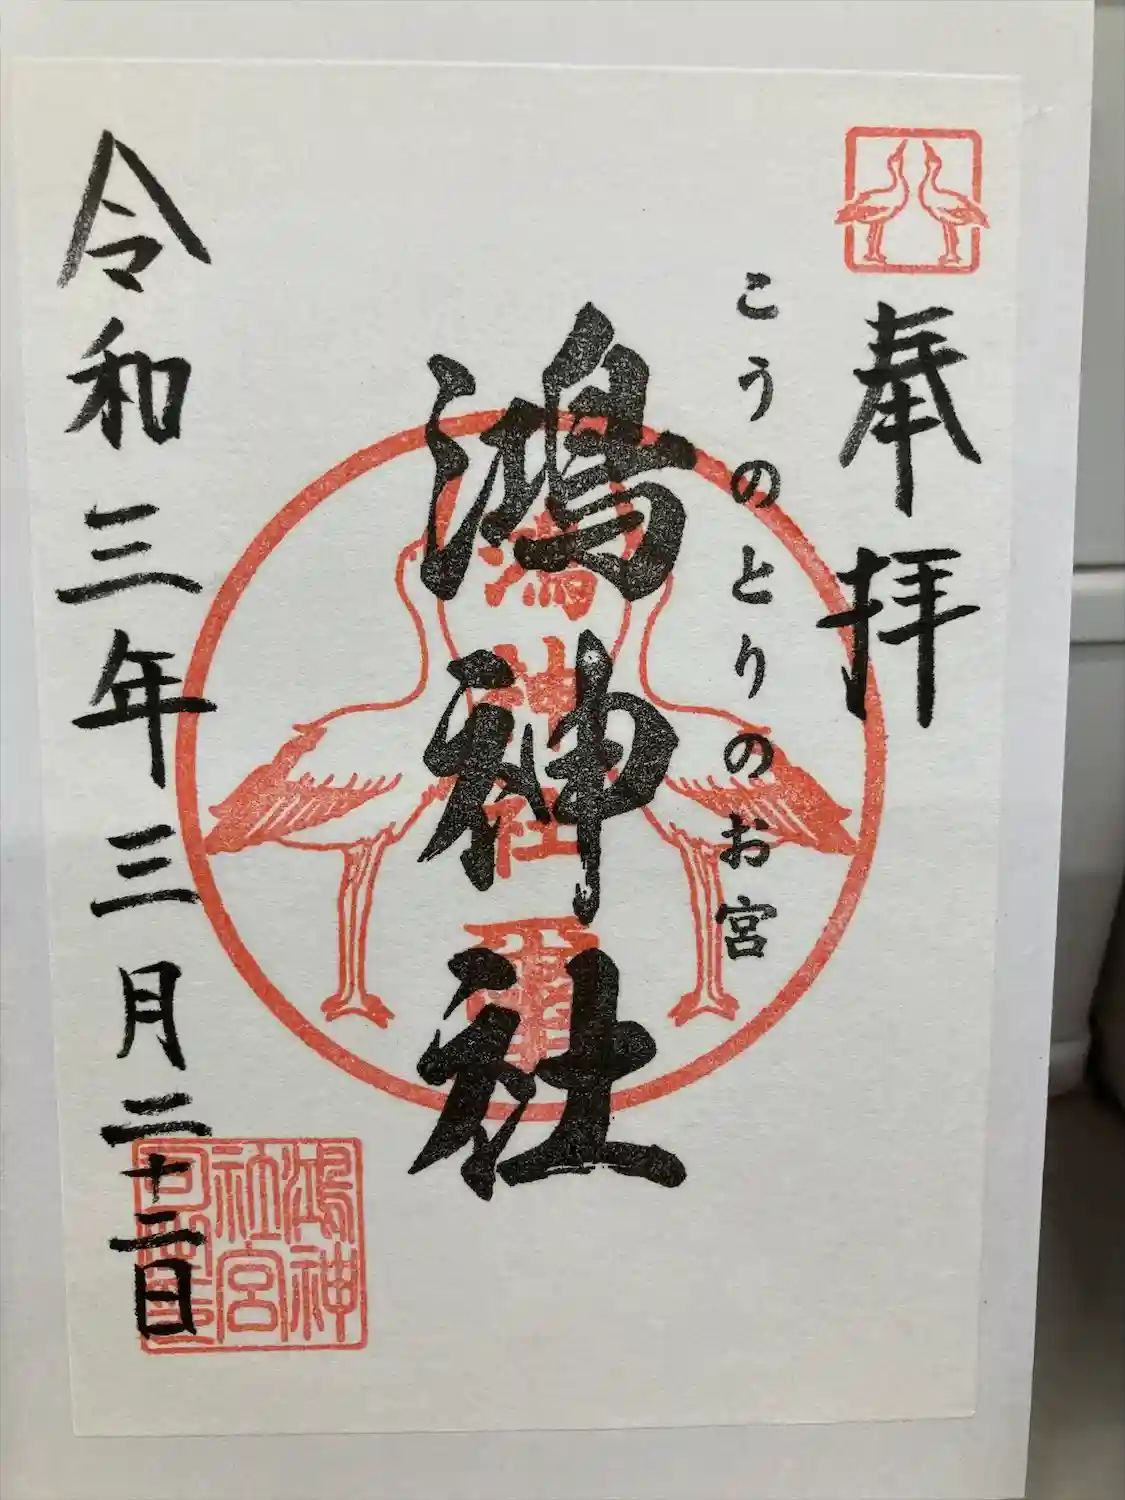 奉拝
こうのとりのお宮
鴻神社
鴻神社
令和三年三月二十二日
鴻神
社宮